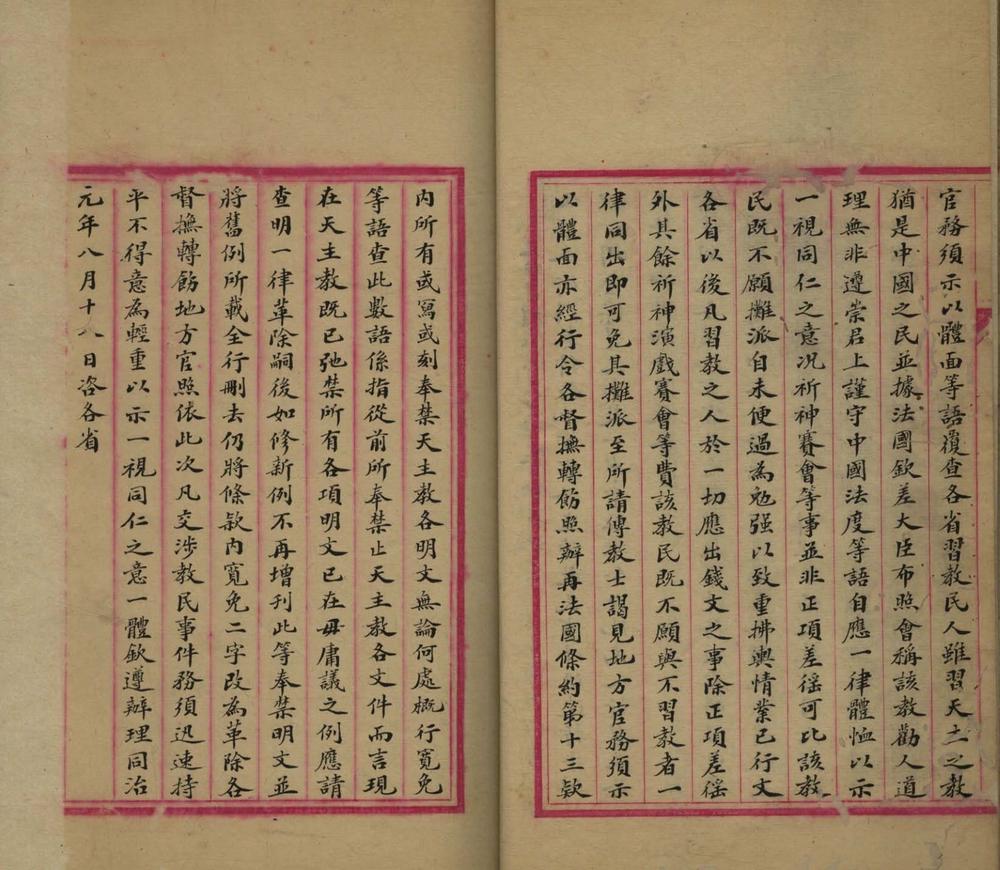 官務須示以體面等語覆查各省習教民人雖習天主之教
猶是中國之民並據法國欽差大臣布照會稱該教勸人道
理無非遵崇君上謹守中國法度等語自應一律體恤以示
一視同仁之意況祈神賽會等事並非正項差徭可比該教
民既不願攤派自未便過為勉强以致重拂輿情業已行文
各省以後凡習教之人於一切應出錢文之事除正項差徭
外其餘祈神演戲賽會等費該教民既不願與不習教者一
律同出即可免其攤派至所請傳教士謁見地方官務須示
以體面亦經行令各督撫轉飭照辦再法國條約第十三款
內所有或寫或刻奉禁天主教各明文無論何處概行寬免
等語查此數語係指從前所奉禁止天主教各文件而言現
在天主教既已弛禁所有各項明文已在毋庸議之例應請
查明一律革除嗣後如修新例不再增刊此等奉禁明文並
將舊例所載全行刪去仍將條款內寬免二字改為革除各
督撫轉飭地方官照依此次凡交涉教民事件務須迅速持
平不得意為輕重以示一視同仁之意一體欽遵辦理同治
元年八月十八日咨各省